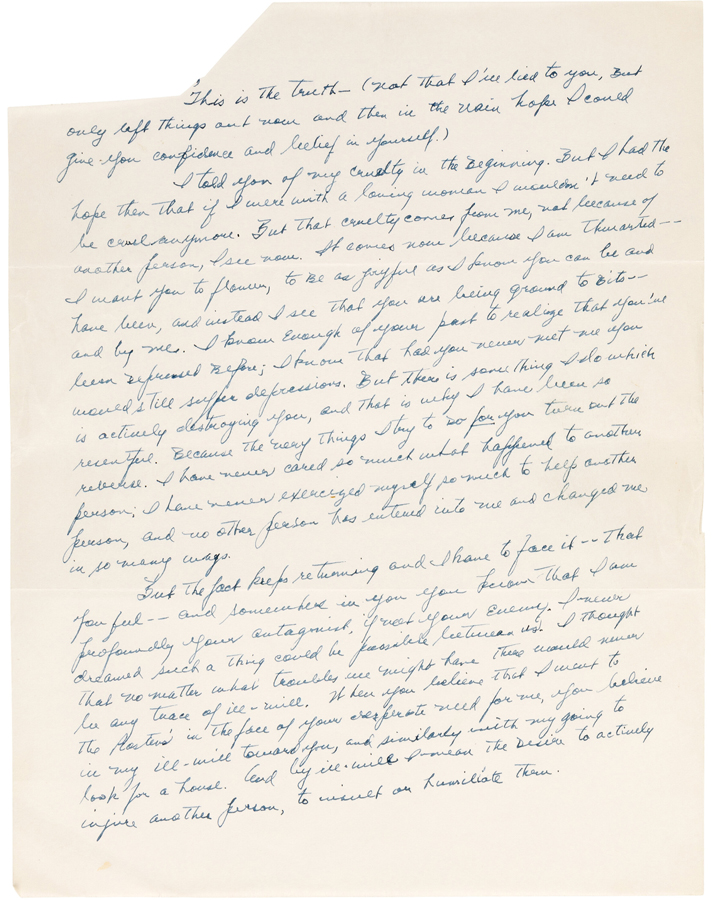 This is the truth— (not that I've lied to you, but
only left things out now and then in the vain hope I could
give you confidence and belief in yourself.)
I told you of my cruelty in the beginning. But I had the
hope then that if I were with a loving woman I wouldn't need to
be cruel anymore. But that cruelty comes from me, not because of
another person, I see now. It comes now because I am thwarted--
I want you to flower, to be as joyful as I know you can be and
have been, and instead I see that you are being ground to bits--
and by me. I know enough of your past to realize that you've
been depressed before; I know that had you never met me you
would still suffer depressions. But there is something I do which
is actively destroying you, and that is why I have been so
resentful. Because the very things I try to do for you turn out the
reverse. I have never cared so much what happened to another
person; I have never exercized myself so much to help another
person, and no other person has entered into me and changed me
in so many ways.
But the fact keeps returning and I have to face it -- that
you feel -- and somewhere in you you know that I am
profoundly your antagonist, if not your enemy. I never
dreamed such a thing could be possible between us. I thought
that no matter what troubles we might have there would never
be any trace of ill-will. When you believe that I went to
the Rostens' in the face of your desperate need for me, you believe
in my ill-will toward you, and similarly with my going to
look for a house. And by ill-will I mean the desire to actively
injure another person, to insult or humiliate them.